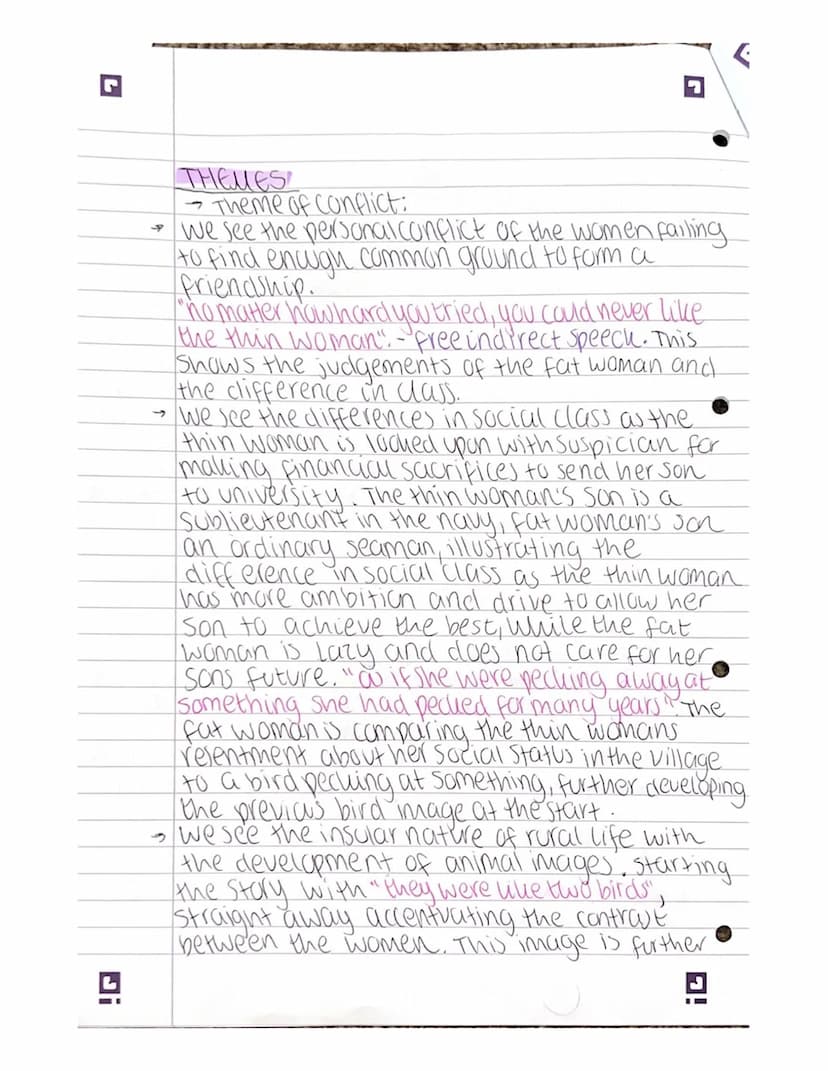 THEMES
→ Theme of Conflict:
→ We see the personal conflict of the women failing
to find enough common ground to form a
friendship.
"no matter how hard you tried, you could never like
the thin woman". - free indirect speech. This
shows the judgements of the fat woman and
the difference in class.
→ We see the differences in social class as the
thin woman is looked upon with suspician for
making financial sacrifices to send her son
to university. The thin woman's son is a
sublieutenant in the navy, fat woman's son
an ordinary seaman, illustrating the
difference in social class as the thin woman
has more ambition and drive to allow her
son to achieve the best, while the fat
woman is lazy and does not care for her
sons future. "as if she were pecking away at
something she had pecked for many years". The
fat woman is comparing the thin womans
resentment about her social status in the village
to a bird pecking at something, further developing
the previous bird image at the start.
→ We see the insular nature of rural life with
the development of animal images. Starting
the story with "they were like two birds",
straight away accentuating the contrast
between the women. This image is further